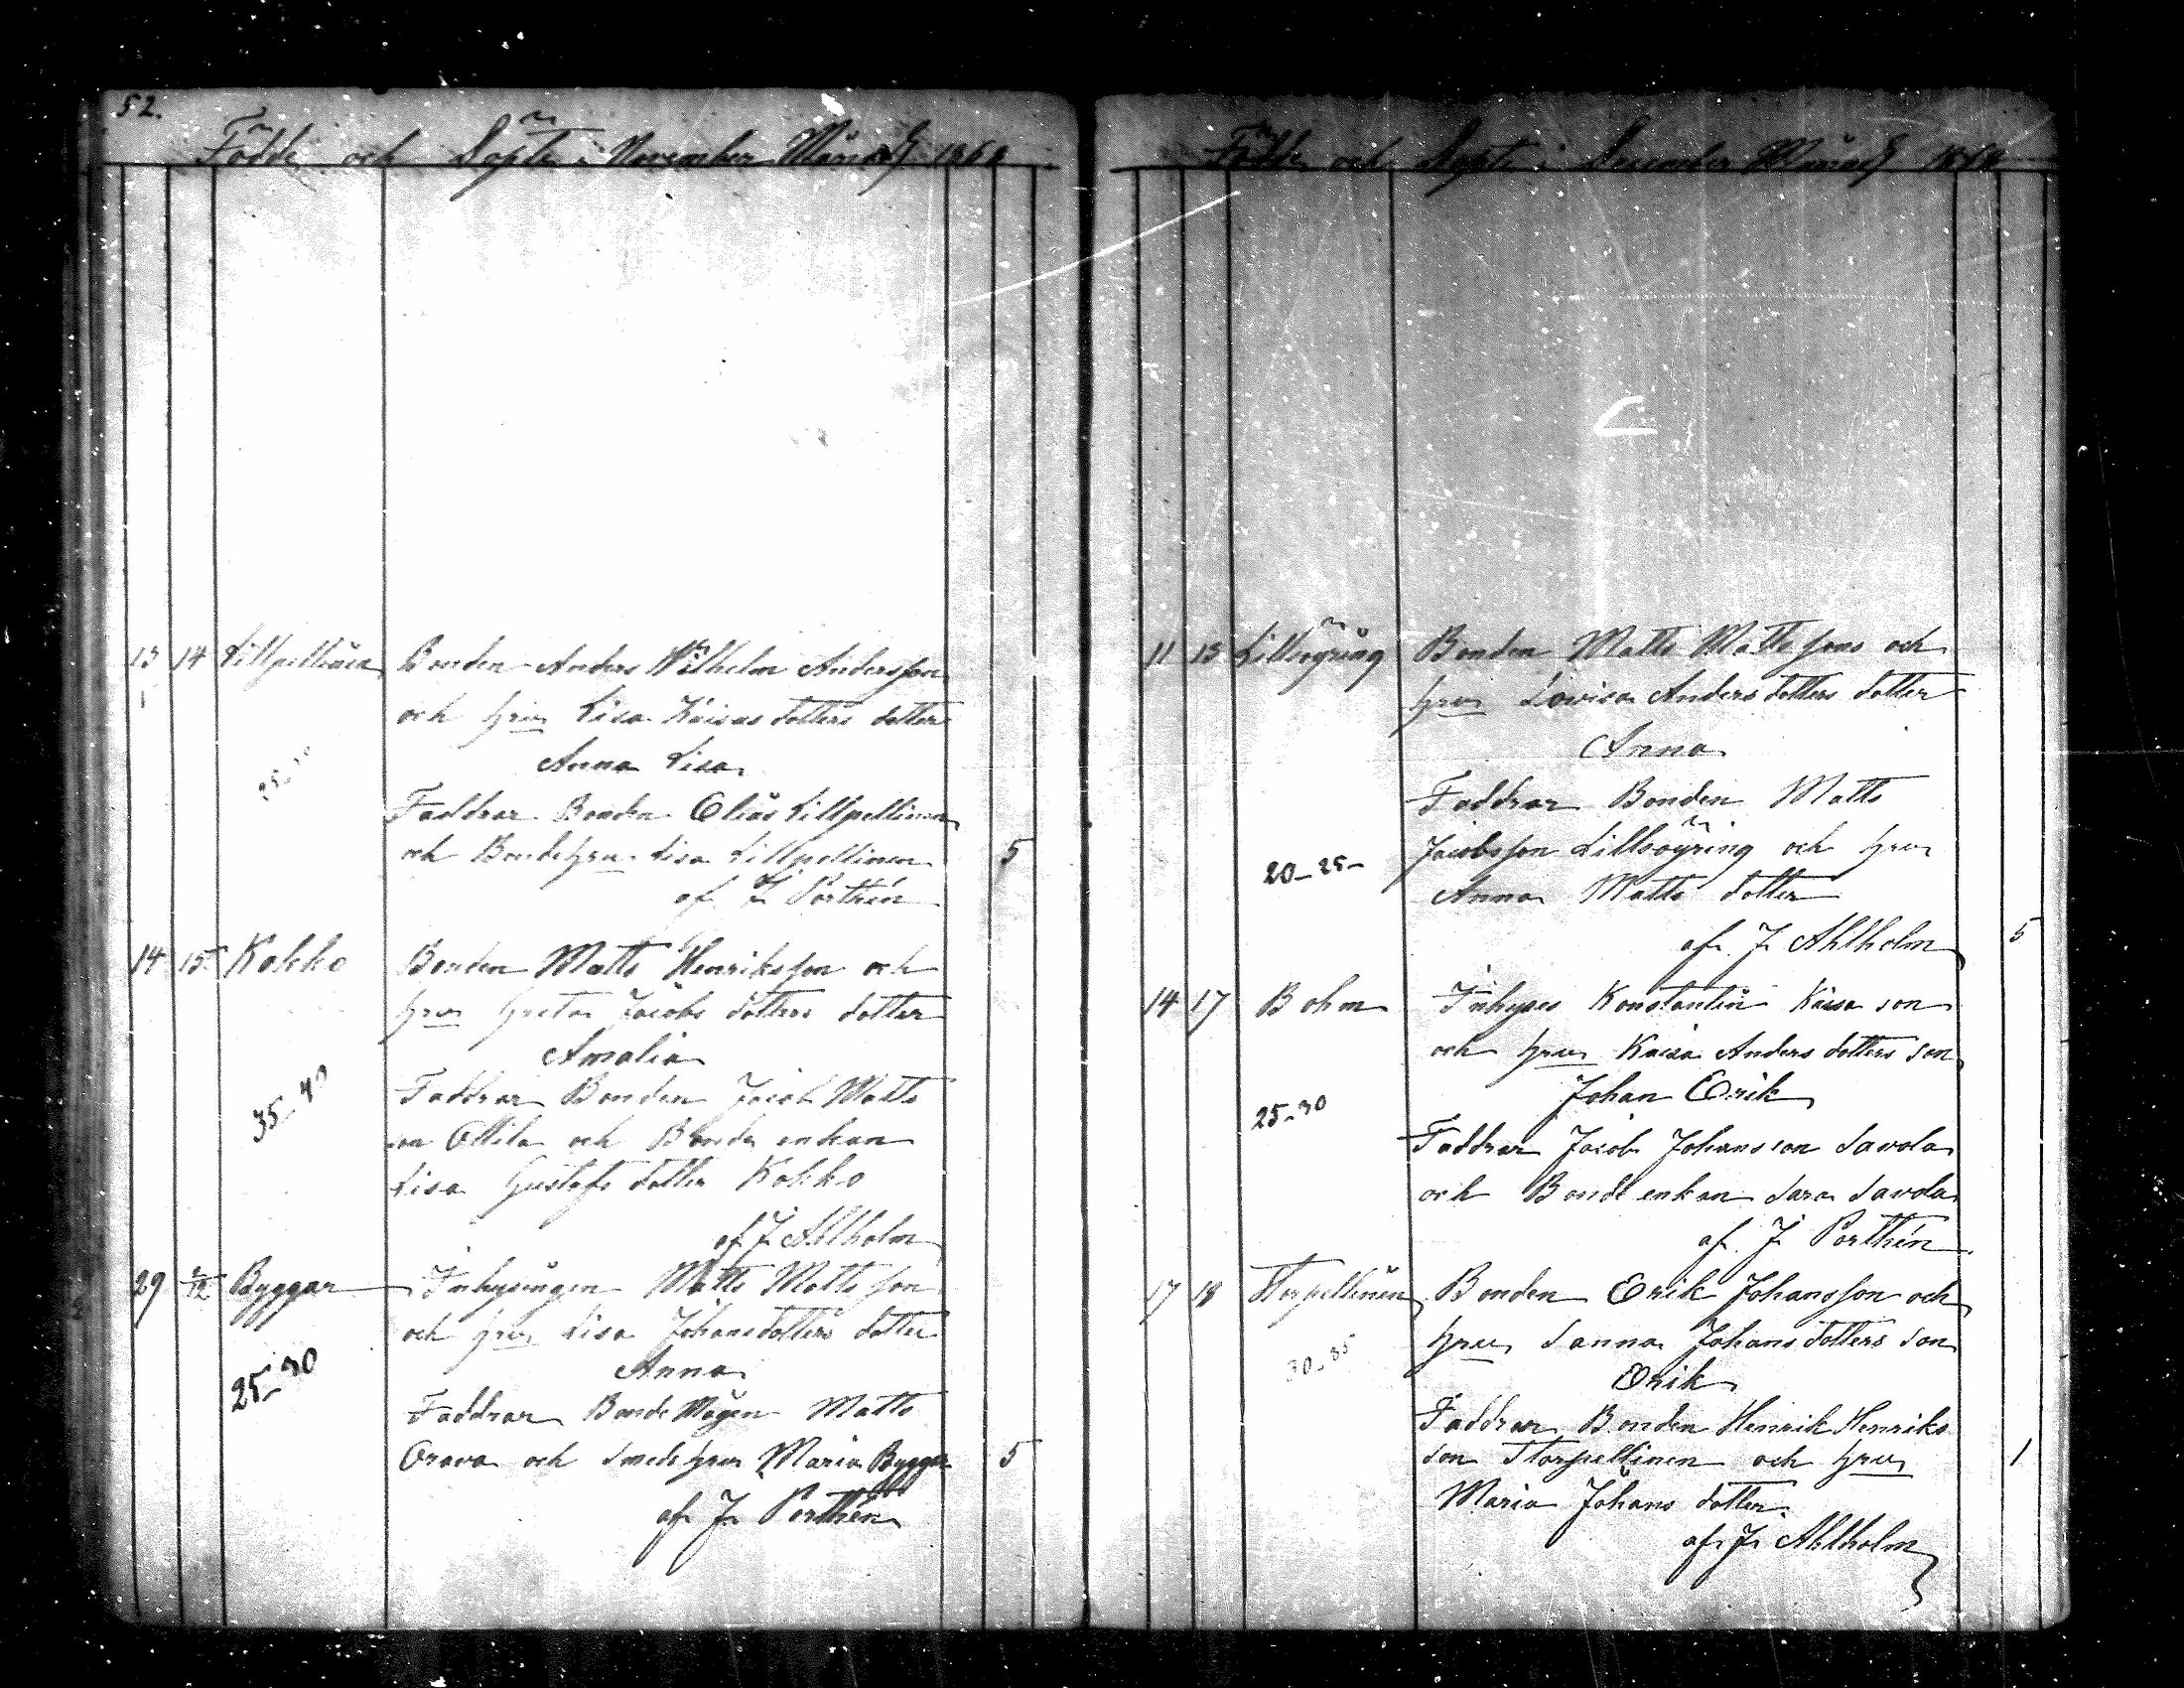 52.
Födde och Döpte i November Månad 1868
13 14 Lillpellinen Bonden Anders Wilhelm Andersson
och hru Lisa Kaisas dotters dotter
Anna Lisa
25-30
Faddrar Bonden Elias Lillpellinen
och Bondehru Lisa Lillpellinen 5
af J. Porthén
14 15 Kokko Bonden Matts Henriksson och
hru Greta Jacobs dotters dotter
Amalia
35-40
Faddrar Bonden Jacob Matts
son Ollila och Bonde enkan
Lisa Gustafs dotter Kokko
af J. Ahlholm
29 2/12 Byggar Inhysingen Matts Matts son
och hru Lisa Johansdotters dotter
Anna
25-30
Faddrar Bonde Mågen Matts
Orava och Smeds hru Maria Byggar 5
af J. Porthén
Födde och Döpte i December Månad 1868
11 13 Lillsöyring Bonden Matts Matts sons och
hru Lovisa Anders dotters dotter
Anna
Faddrar Bonden Matts
Jacobsson Lillsöyring och hru
20-25-
Anna Matts dotter
af J. Ahlholm 5
14 17 Bohm Inhyses Konstantin Kaisa son
och hru Kaisa Anders dotters son
Johan Erik
25-30
Faddrar Jacob Johansson Savola
och Bonde enkan Sara Savola
af J. Porthén
17 18 Storpellinen Bonden Erik Johansson och
hru Sanna Johans dotters son
30-35
Erik
Faddrar Bonden Henrik Henriks
son Storpellinen och hru 1
Maria Johans dotter
af J. Ahlholm